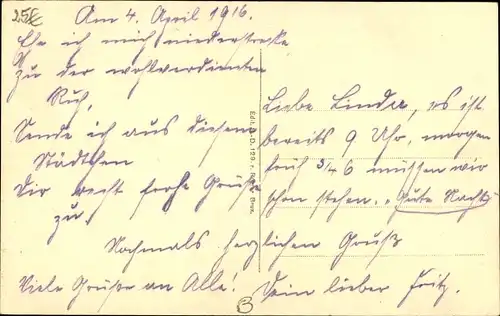 25€
Am 4. April 1916.
Ehe ich mich niederstrecke
zu der wohlverdienten
Ruh,
Sende ich aus diesem
Städtchen
Dir recht frohe Grüße
zu.
Liebe Linda, es ist
bereits 9 Uhr, morgen
früh 3/4 6 müssen wir
schon stehen. "Gute Nacht"
Nochmals herzlichen Gruß
Viele Grüße an Alle! Dein lieber Fritz.
B